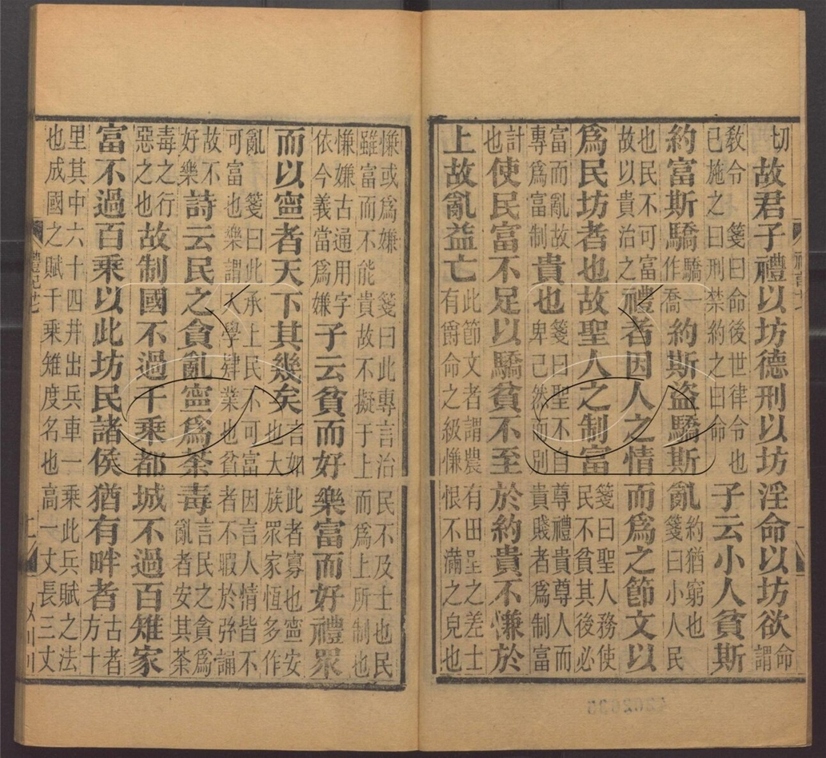 切故君子禮以坊德刑以坊淫命以坊欲命謂
敎令　箋曰命後世律令也
已施之曰刑禁約之曰命
子云小人貧斯
約富斯驕驕一作喬約斯盗驕斯亂約猶窮也箋曰小人民
也民不可富故以貴治之禮者因人之情而爲之節文以
爲民坊者也故聖人之制富箋曰聖人務使民不貧其後必
富而亂故專爲富制貴也箋曰聖不自尊禮貴尊人而卑己然而別貴賤者爲制富
計也使民富不足以驕貧不至於約貴不慊於
上故亂益亡此節文者謂農有田里之差士有爵命之級慊恨不滿之皃也
慊或爲嫌　箋曰此專言治民不及士也民
雖富而不能貴故不擬于上而爲上所制也
慊嫌古通用字依今義當爲嫌子云貧而好樂富而好禮眾
而以寍者天下其幾矣言如此者寡也寍安也大族眾家恆多作
亂　箋曰此承上民不可富因言人情皆不
可富也樂謂大學肄業也貧者不暇於弦誦
故不好樂詩云民之貪亂寍爲荼毒言民之貪爲亂者安其荼
毒之行惡之也故制國不過千乘都城不過百雉家
富不過百乘以此坊民諸侯猶有畔者古者方十
里其中六十四井出兵車一乘此兵賦之法
也成國之賦千乘雉度名也高一丈長三丈
禮記廿